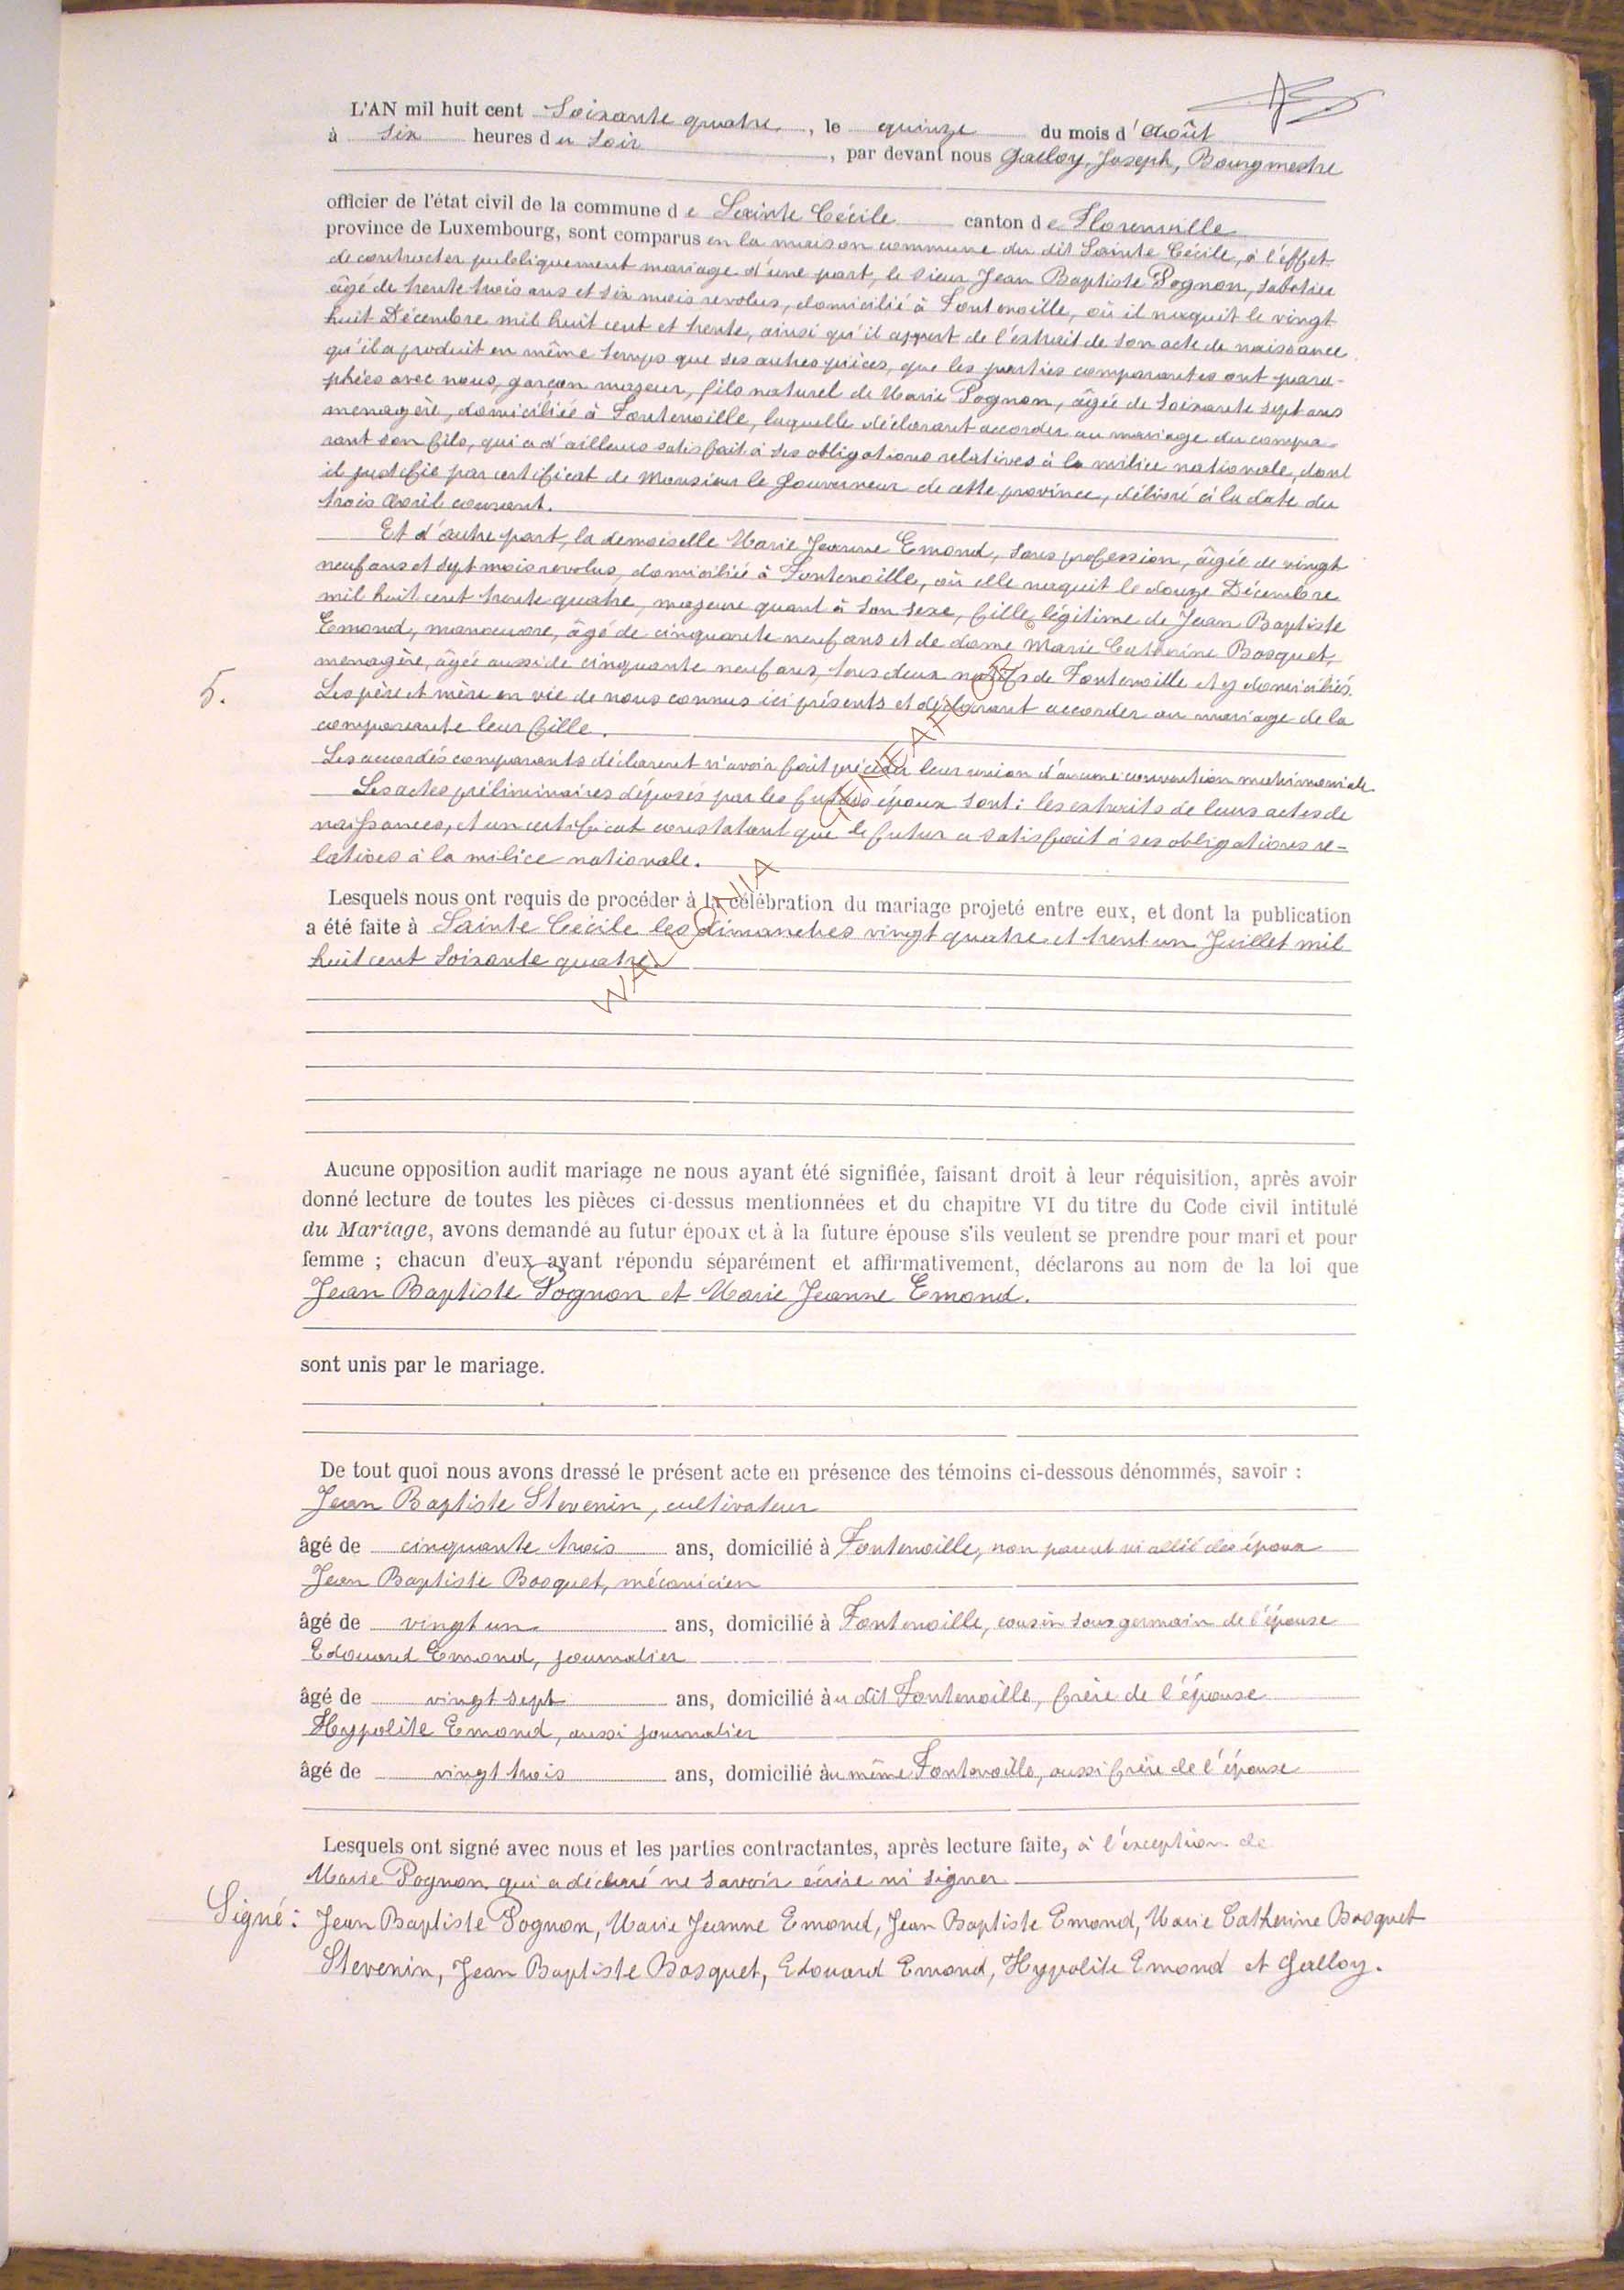 L'AN mil huit cent Soixante quatre, le quinze du mois d'Août
à six heures du soir, par devant nous Galloy, Joseph, Bourgmestre
officier de l'état civil de la commune de Sainte Cécile canton de Florenville
province de Luxembourg, sont comparus en la maison commune du dit Sainte Cécile, à l'effet
de contracter publiquement mariage d'une part, le sieur Jean Baptiste Pognon, sabotier
âgé de trente trois ans et six mois revolus, domicilié à Fontenoille, où il naquit le vingt
huit Décembre mil huit cent et trente, ainsi qu'il appert de l'extrait de son acte de naissance
qu'il a produit en même temps que ses autres pièces, que les parties comparantes ont para-
phées avec nous, garçon majeur, fils naturel de Marie Pognon, âgée de soixante sept ans
menagère, domiciliée à Fontenoille, laquelle déclarant accorder au mariage du compa-
rant son fils, qui a d'ailleurs satisfait à ses obligations relatives à la milice nationale, dont
il justifie par certificat de Monsieur le Gouverneur de cette province, délivré à la date du
trois Avril courant.
Et d'autre part, la demoiselle Marie Jeanne Emond, sans profession, âgée de vingt
neuf ans et sept mois revolus, domiciliée à Fontenoille, où elle naquit le douze Décembre
mil huit cent trente quatre, majeure quant à son sexe, fille légitime de Jean Baptiste
Emond, manoeuvre, âgé de cinquante neuf ans et de dame Marie Catherine Bosquet,
menagère, âgée aussi de cinquante neuf ans, tous deux natifs de Fontenoille et y domiciliés.
5.
Les père et mère en vie de nous connus ici présents et déclarant accorder au mariage de la
comparante leur fille.
Les accordés comparants déclarent n'avoir fait précéder leur union d'aucune convention matrimoniale
Les actes préliminaires déposés par les futurs époux sont : les extraits de leurs actes de
naissances, et un certificat constatant que le futur a satisfait à ses obligations re-
latives à la milice nationale.
WALLONIA GENEAFD ©
Lesquels nous ont requis de procéder à la célébration du mariage projeté entre eux, et dont la publication
a été faite à Sainte Cécile les dimanches vingt quatre et trent un Juillet mil
huit cent soixante quatre.
Aucune opposition audit mariage ne nous ayant été signifiée, faisant droit à leur réquisition, après avoir
donné lecture de toutes les pièces ci-dessus mentionnées et du chapitre VI du titre du Code civil intitulé
du Mariage, avons demandé au futur époux et à la future épouse s'ils veulent se prendre pour mari et pour
femme ; chacun d'eux ayant répondu séparément et affirmativement, déclarons au nom de la loi que
Jean Baptiste Pognon et Marie Jeanne Emond.
sont unis par le mariage.
De tout quoi nous avons dressé le présent acte en présence des témoins ci-dessous dénommés, savoir :
Jean Baptiste Stevenin, cultivateur
âgé de cinquante trois ans, domicilié à Fontenoille, non parent ni allié des époux
Jean Baptiste Bosquet, mécanicien
âgé de vingt un ans, domicilié à Fontenoille, cousin sous germain de l'épouse
Edouard Emond, journalier
âgé de vingt sept ans, domicilié àu dit Fontenoille, frère de l'épouse
Hypolite Emond, aussi journalier
âgé de vingt trois ans, domicilié àu même Fontenoille, aussi frère de l'épouse
Lesquels ont signé avec nous et les parties contractantes, après lecture faite, à l'exception de
Marie Pognon qui a déclaré ne savoir écrire ni signer
Signé : Jean Baptiste Pognon, Marie Jeanne Emond, Jean Baptiste Emond, Marie Catherine Bosquet
Stevenin, Jean Baptiste Bosquet, Edouard Emond, Hypolite Emond et Galloy.